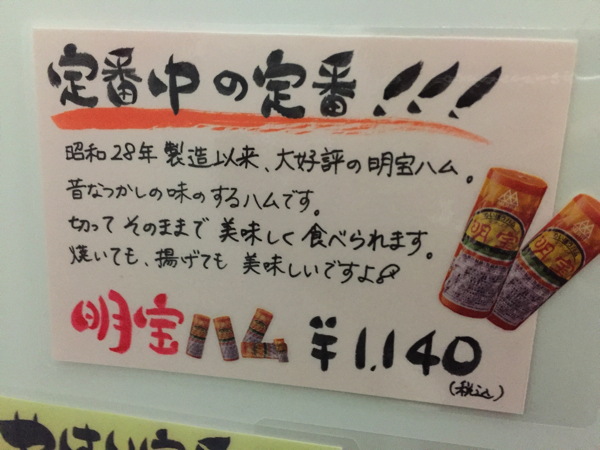 定番中の定番!!!
昭和28年製造以来、大好評の明宝ハム。
昔なつかしの味のするハムです。
切ってそのままで美味しく食べられます。
焼いても、揚げても美味しいですよ
明宝ハム ¥1,140
(税込)
明宝
明宝